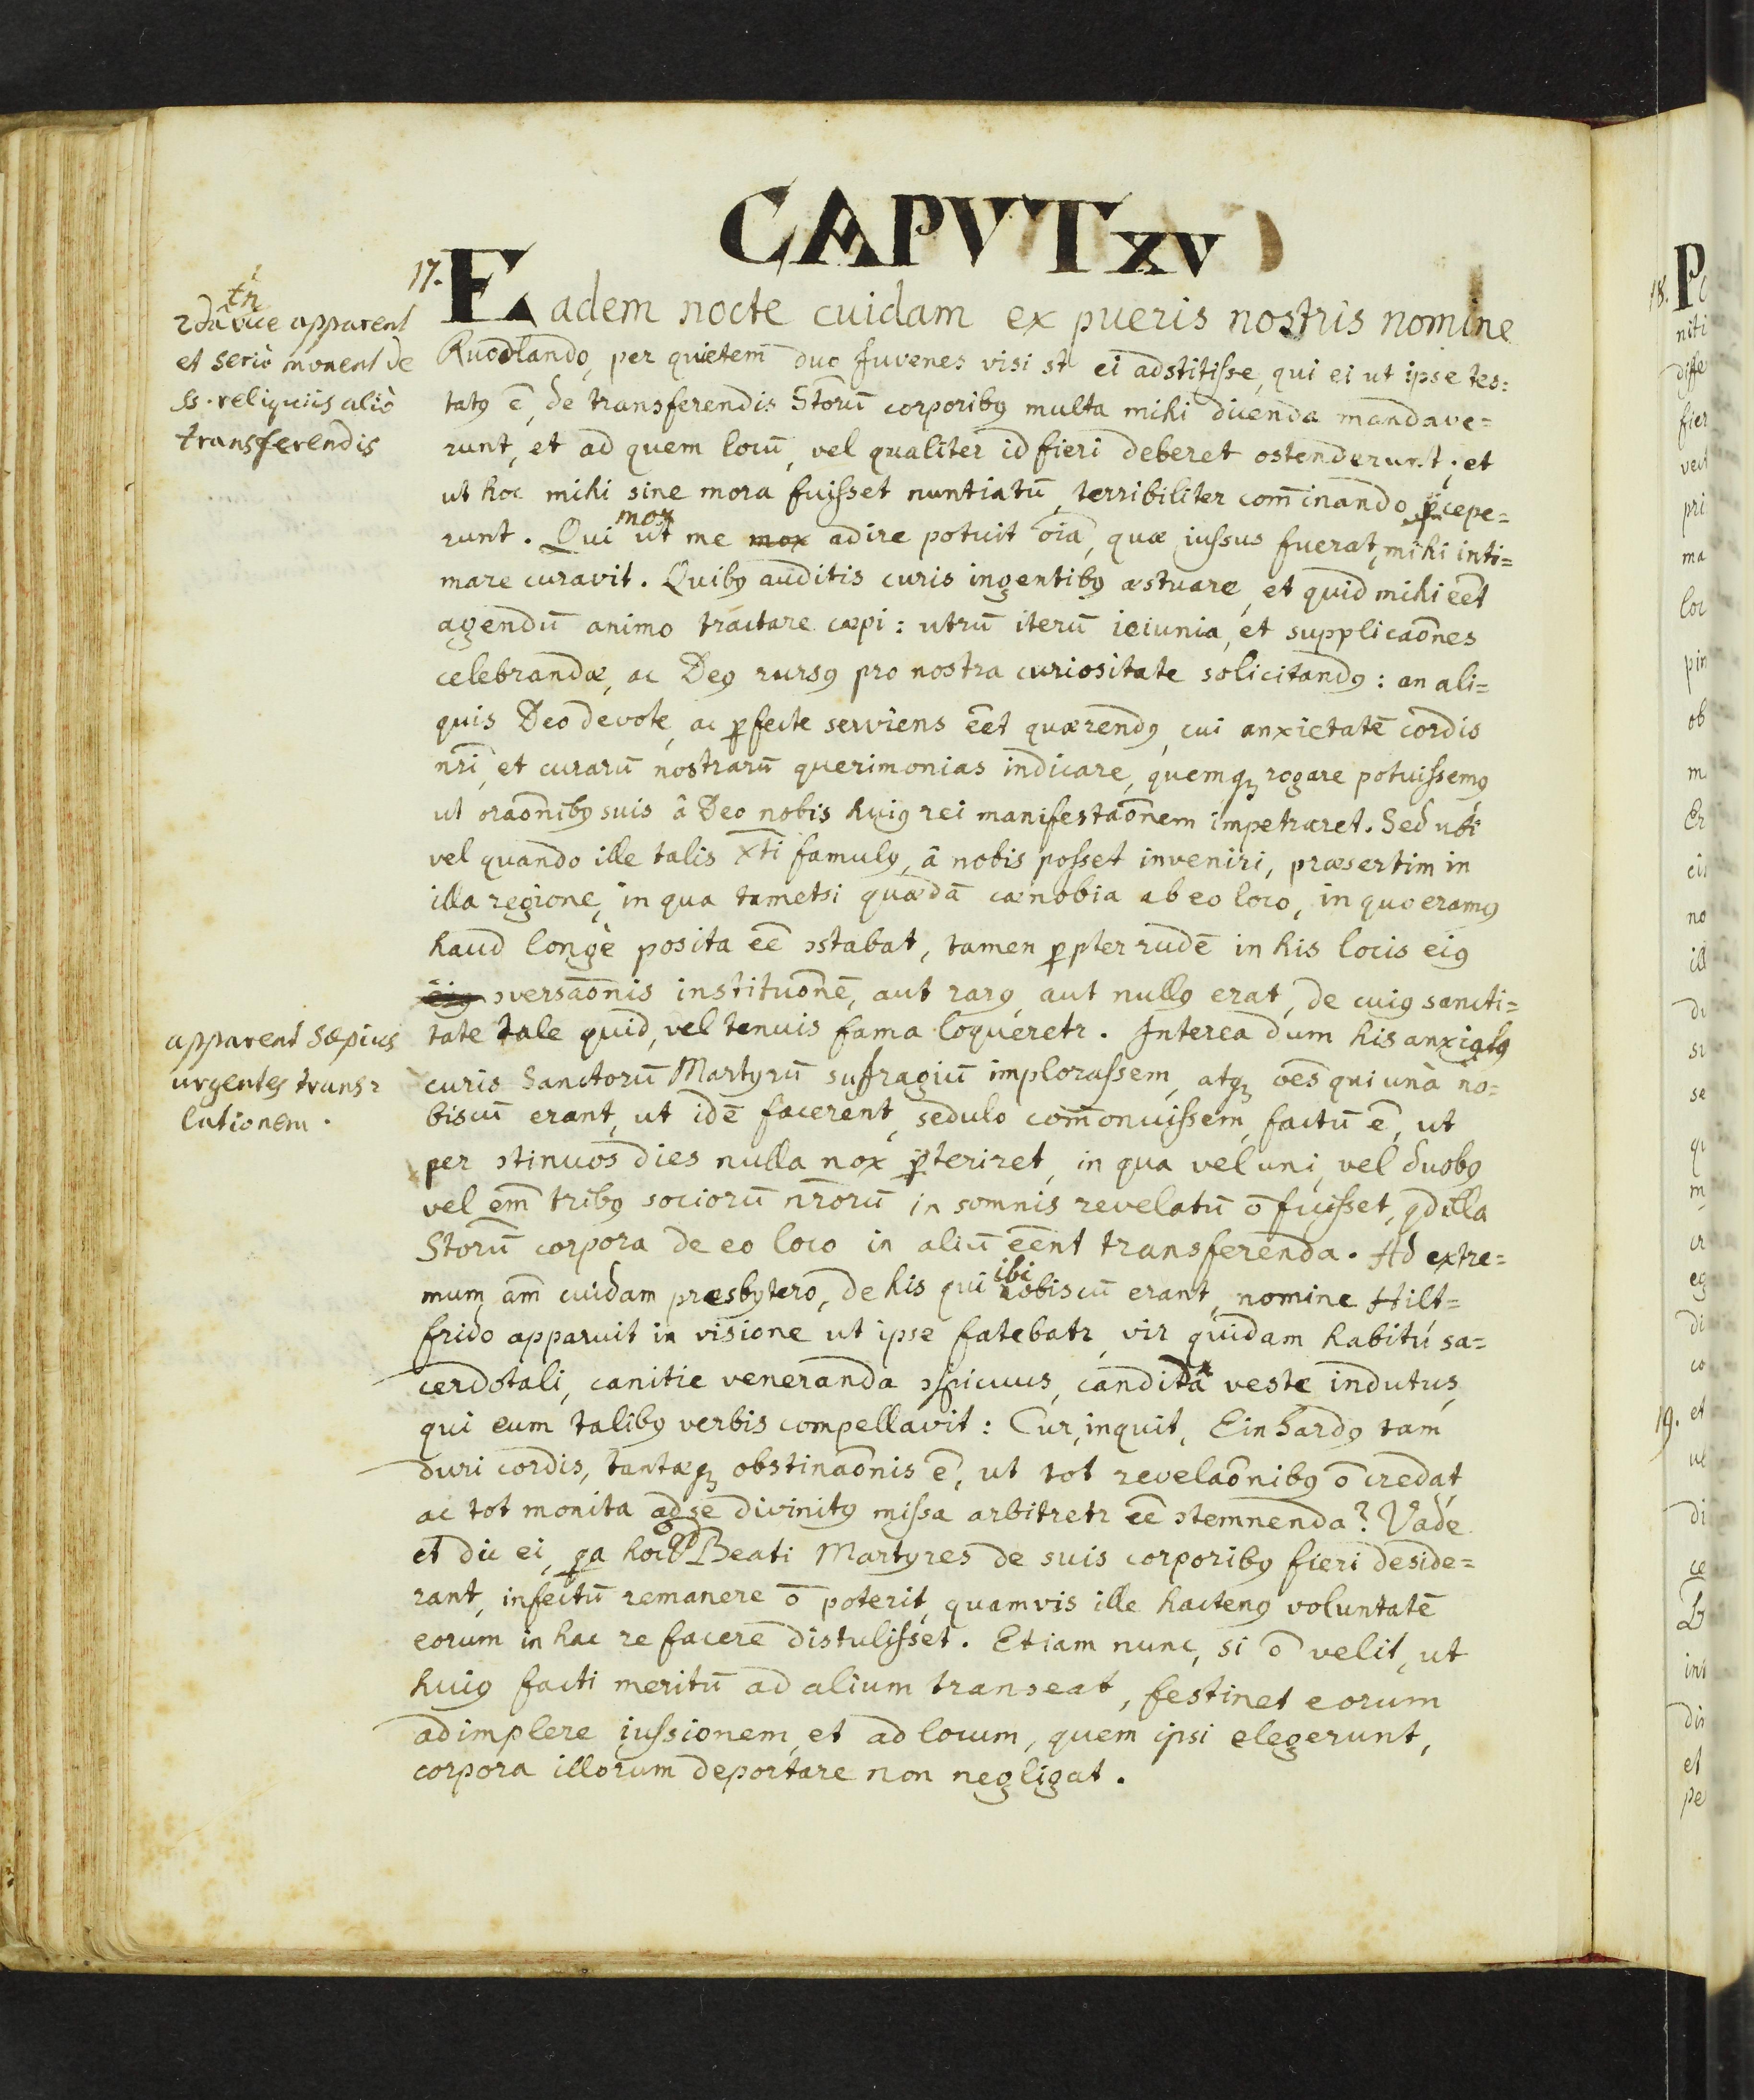 CAPVT XV
17. Eadem nocte cuidam ex pueris nostris nomine
Ruodlando, per quietem duo Juvenes visi st̄ ei adstitisse, qui ei ut ipse tes=
tatꝰ ē, de transferendis Storū corporibꝰ multa mihi dicenda mandave=
runt, et ad quem locū, vel qualiter id fieri deberet ostenderunt; et
ut hoc mihi sine mora fuisset nuntiatū, terribiliter com̄inando p̄cepe=
runt. Qui mox ut me mox adire potuit oīa, quæ iussus fuerat, mihi inti=
mare curavit. Quibꝰ auditis curis ingentibꝰ æstuare, et quid mihi eēt
agendū animo tractare cæpi: utrū iterū ieiunia, et supplicaōnes
celebrandæ, ac Deꝰ rursꝰ pro nostra curiositate solicitandꝰ: an ali=
quis Deo devote, ac ꝑfecte serviens eēt quærendꝰ, cui anxietatē cordis
nr̄i, et curarū nostrarū querimonias indicare, quemqꝫ rogare potuissemꝰ
ut oraōnibꝰ suis â Deo nobis huiꝰ rei manifestaōnem impetraret. Sed ubi
vel quando ille talis Xti famulꝰ, â nobis posset inveniri, præsertim in
illa regione, in qua tametsi quædā cænobia ab eo loco, in quo eramꝰ
haud longè posita eē ɔstabat, tamen ꝓpter rudē in his locis eiꝰ
eiꝰ ɔversaōnis instituōnē, aut rarꝰ aut nullꝰ erat, de cuiꝰ sancti=
tate tale quid, vel tenuis fama loqueretr. Interea dum his anxiatꝰ
curis Sanctorū Martyrū sufragiū implorassem, atqꝫ oēs qui unà no=
biscū erant, ut idē facerent, sedulo com̄onuissem, factū ē, ut
per ɔtinuos dies nulla nox p̄teriret, in qua vel uni, vel duobꝰ
vel em̄ tribꝰ sociorū nr̄orū in somnis revelatū ō fuisset, qd illa
Storū corpora de eo loco in aliū eēnt transferenda. Ad extre=
mum am̄ cuidam præsbytero, de his qui ibi nobiscū erant, nomine Hilt=
frido apparuit in visione ut ipse fatebatr vir quidam habitu sa=
cerdotali, canitie veneranda ɔspicuus, candida veste indutus,
qui eum talibꝰ verbis compellavit: Cur, inquit, Einhardꝰ tam
duri cordis, tantæqꝫ obstinaōnis ē, ut tot revelaōnibꝰ ō credat,
ac tot monita ad se divinitꝰ missa arbitretr eē ɔtemnenda? Vade
et dic ei, qa hoc qd Beati Martyres de suis corporibꝰ fieri deside=
rant, infectū remanere ō poterit, quamvis ille hactenꝰ voluntatē
eorum in hac re facere distulisset. Etiam nunc, si ō velit, ut
huiꝰ facti meritū ad alium transeat, festinet eorum
adimplere iussionem, et ad locum, quem ipsi elegerunt,
corpora illorum deportare non negligat.
2dâ vice apparent
et serio monent de
ss. reliquiis aliò
transferendis
apparent sæpius
urgentes trans=
lationem.
18.
19.